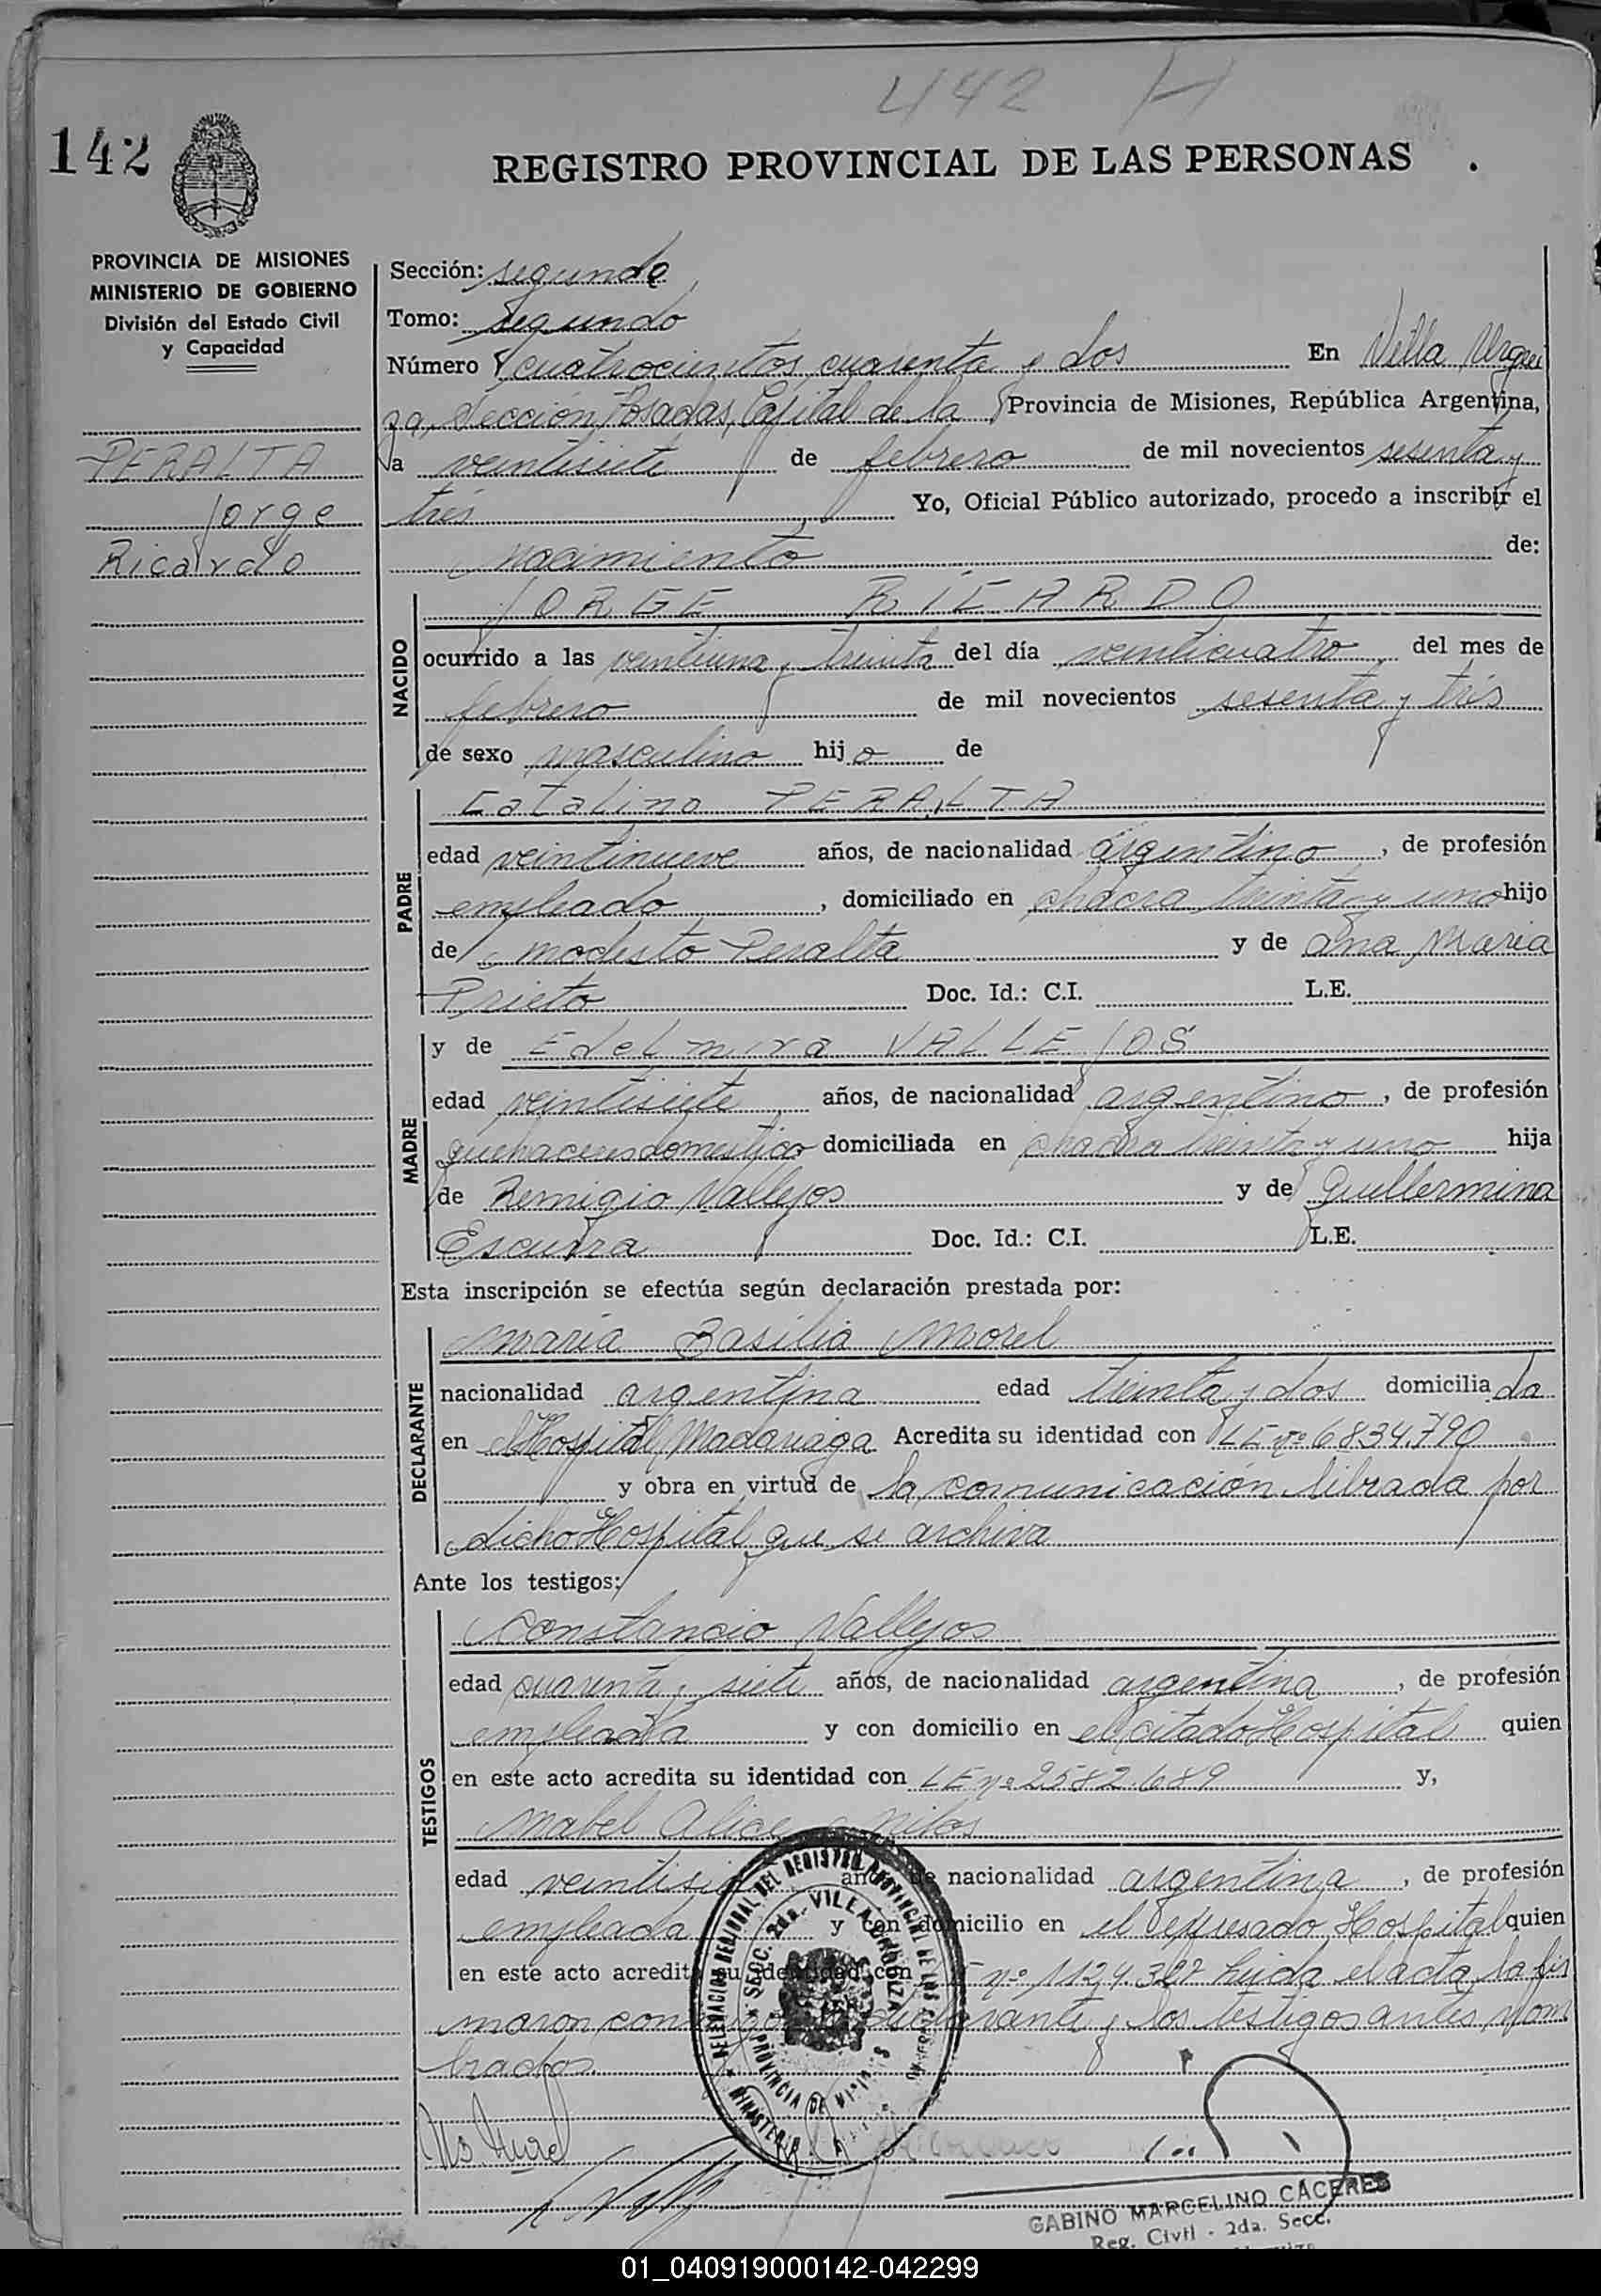 442 H
142
REGISTRO PROVINCIAL DE LAS PERSONAS .
PROVINCIA DE MISIONES
MINISTERIO DE GOBIERNO
División del Estado Civil
y Capacidad
PERALTA
Jorge
Ricardo
Sección: segunda
Tomo: segundo
Número cuatrocientos cuarenta y dos En Villa Urqui
za, Sección Posadas, Capital de la Provincia de Misiones, República Argentina,
a veintisiete de febrero de mil novecientos sesenta y
tres Yo, Oficial Público autorizado, procedo a inscribir el
nacimiento de:
NACIDO
JORGE RICARDO
ocurrido a las veintiuna y treinta del día veinticuatro del mes de
febrero de mil novecientos sesenta y tres
de sexo masculino hijo de
PADRE
Catalino PERALTA
edad veintinueve años, de nacionalidad argentino, de profesión
empleado, domiciliado en chacra treinta y uno hijo
de modesto Peralta y de Ana Maria
Prieto Doc. Id.: C.I. L.E.
MADRE
y de Edelmira VALLEJOS
edad veintisiete años, de nacionalidad argentino, de profesión
quehaceres domésticos domiciliada en chacra treinta y uno hija
de Remigio Vallejos y de Guillermina
Escurra Doc. Id.: C.I. L.E.
Esta inscripción se efectúa según declaración prestada por:
DECLARANTE
Maria Basilia Morel
nacionalidad argentina edad treinta y dos domiciliada
en Hospital Madariaga Acredita su identidad con LE nº 6834.790
y obra en virtud de la comunicación librada por
dicho Hospital que se archiva
Ante los testigos:
TESTIGOS
Constancio Vallejos
edad cuarenta y siete años, de nacionalidad argentina, de profesión
empleada y con domicilio en el citado Hospital quien
en este acto acredita su identidad con LE nº 2582.689 y,
Mabel Alice
edad años de nacionalidad argentina, de profesión
empleada y con domicilio en el expresado Hospital quien
en este acto acredita su identidad con nº 1124.322 leida el acta la fir
maron conmigo declarante y los testigos antes nom
brados.
SECC. 2da. VILLA URQUIZA
PROVINCIA DE
GABINO MARCELINO CACERES
Reg. Civil - 2da. Secc.
01_040919000142-042299